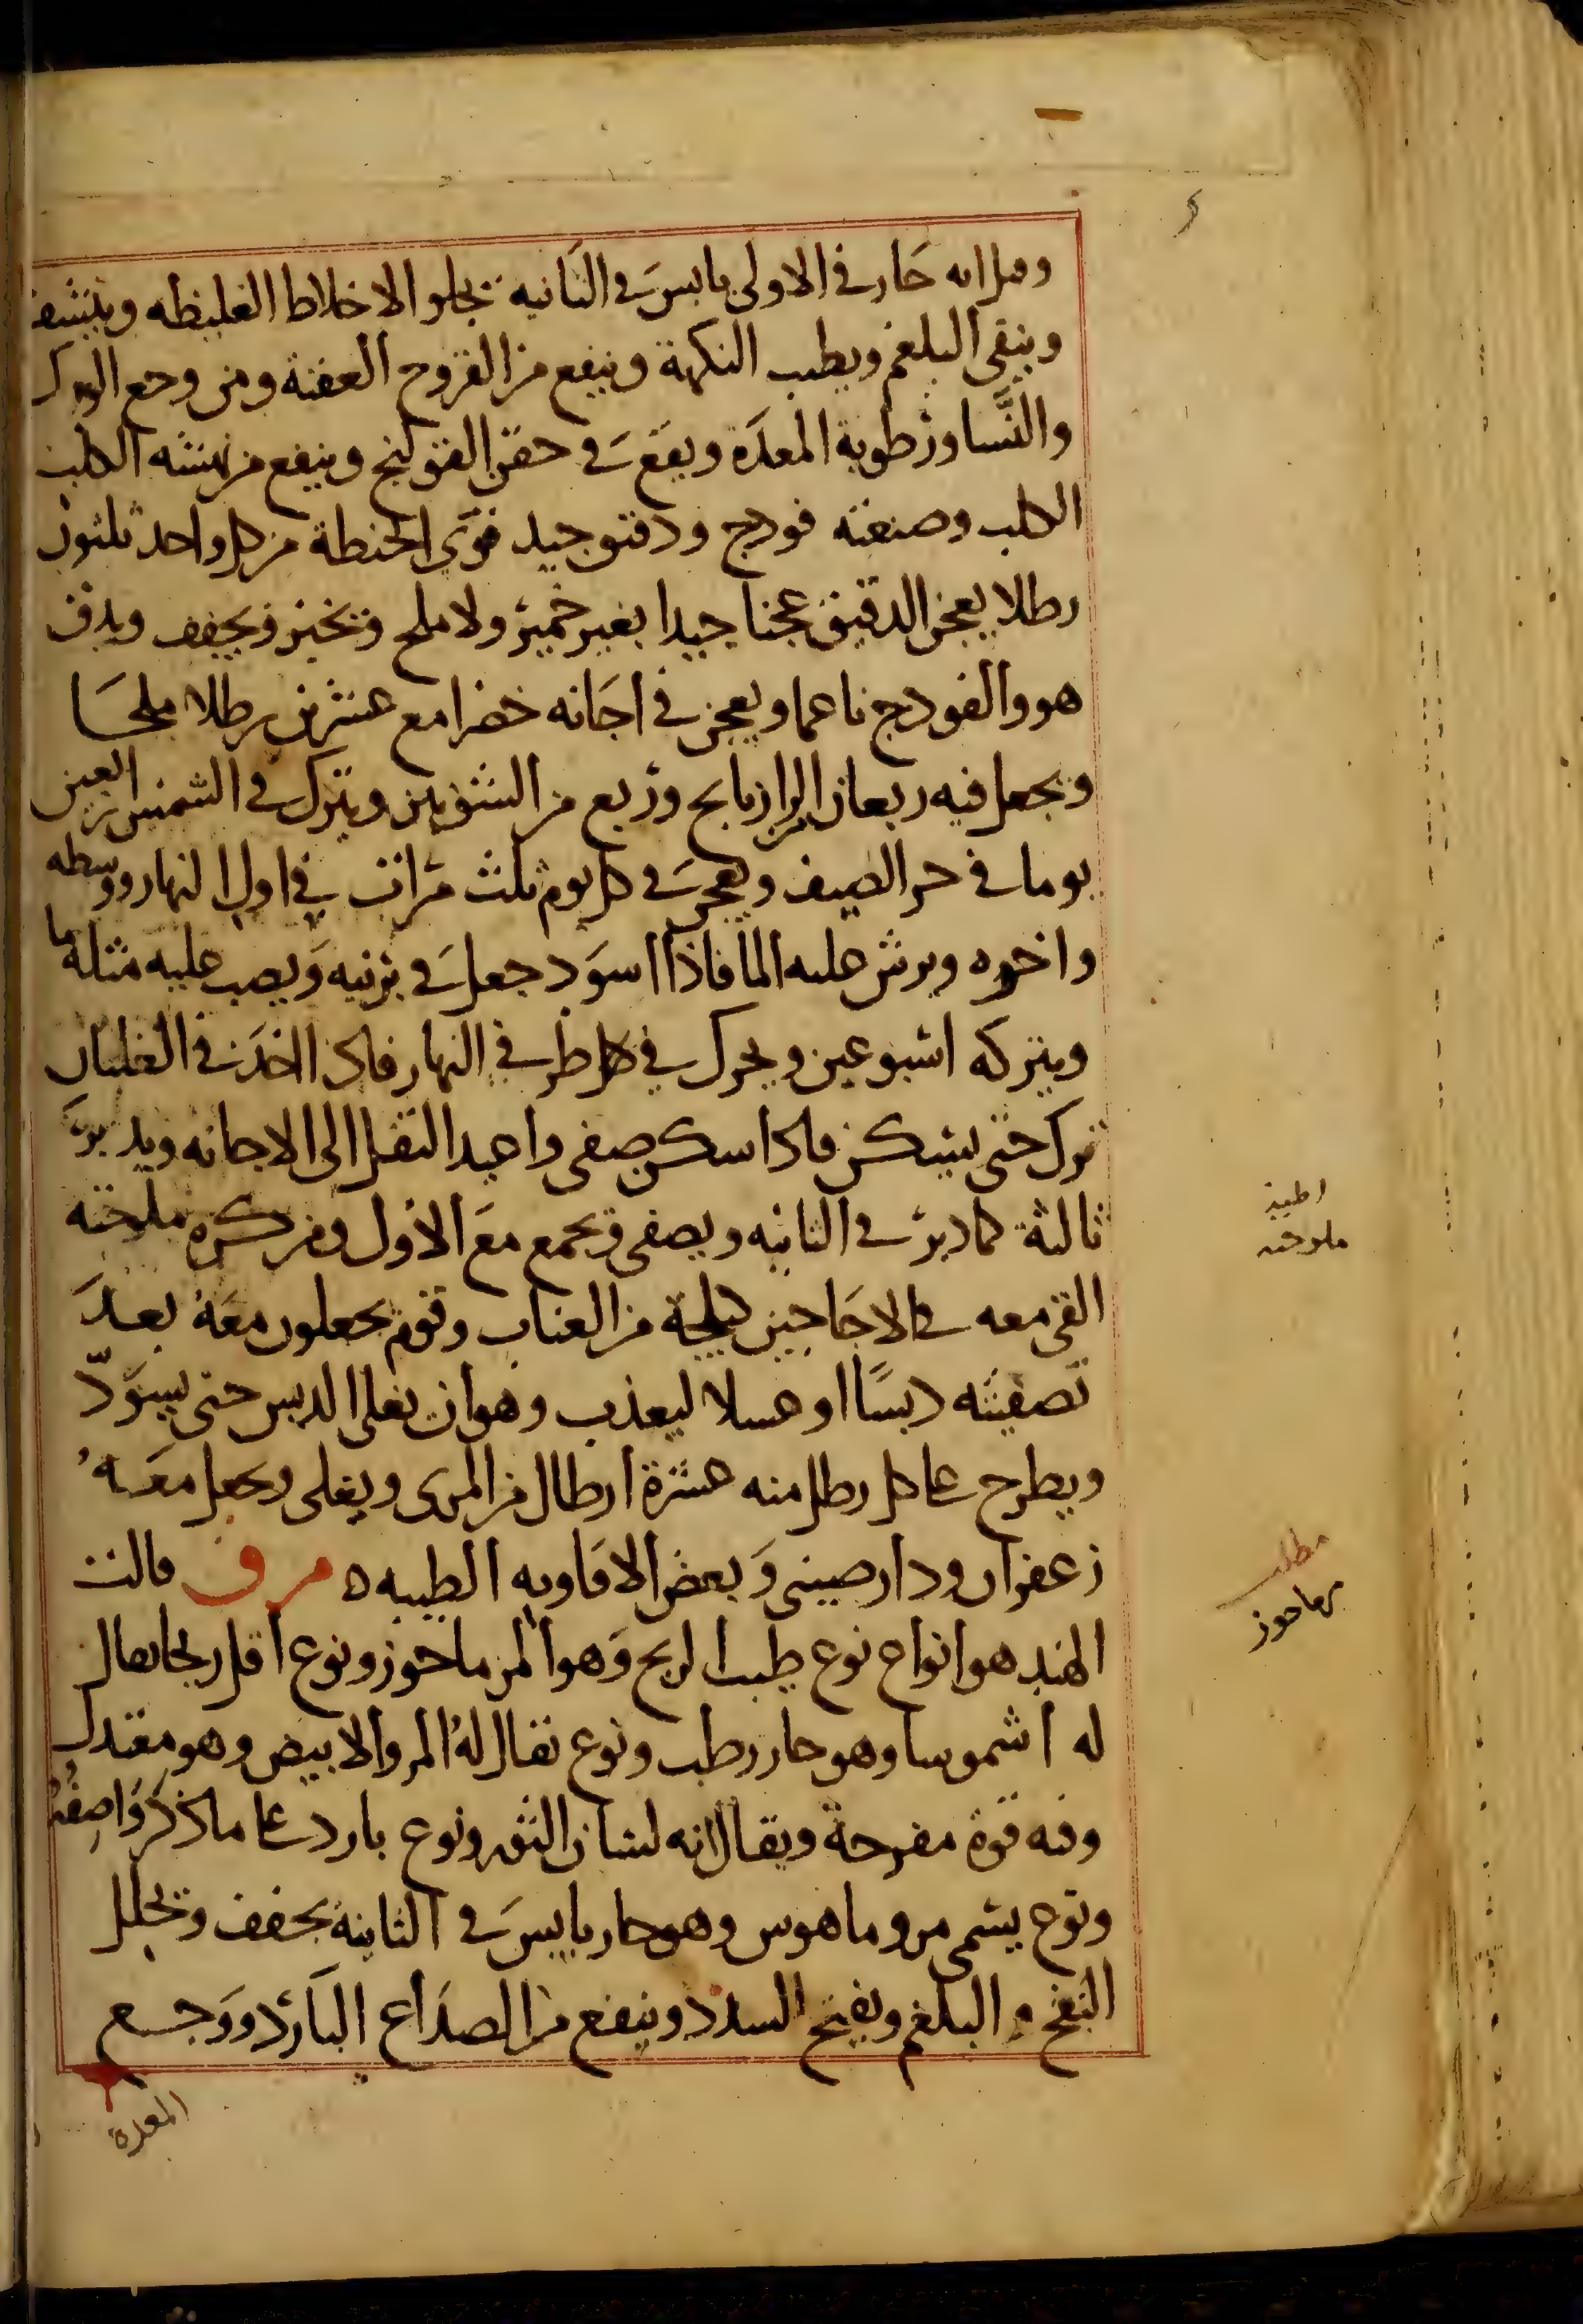 وقيل انه حار في الاولى يابس في الثانيه يجلو الاخلاط الغليظه وينشف
وينقي البلغم ويطيب النكهة وينفع من القروح العفنة ومن وجع الورك
والنَّسا ورطوبة المعدة ويقع في حقن القولنج وينفع من نهشه الكلب
الكلب وصنعته فودج ودقيق جيد قوي الحنطة من كل واحد ثلثون
رطلا يعجن الدقيق عجنا جيدا بغير خمير ولا ملح ويخبز ويجفف ويدق
هو والفودج ناعما ويعجن في اجانه خضرا مع عشرين رطلا ملحا
ويجعل فيه ربعان الرازيانج وربع من الشونيز ويترك في الشمس اربعين
يوما في حر الصيف ويعجن في كل يوم ثلث مرات في اول النهار ووسطه
واخره ويرش عليه الما فاذا اسود جعل في برنيه ويصب عليه مثله ما
ويتركه اسبوعين ويحرك في كل طرفي النهار فاذا اخذ في الغليان
ترك حتى يسكن فاذا سكن صفى واعيد الثفل الى الاجانه ويدبر
ثالثة كما دبر في الثانيه ويصفى ويجمع مع الاول ومن كره ملوحته
القى معه في الاجاجين كيلجة من العناب وقوم يجعلون معه بعد
تصفيته دبسًا او عسلا ليعذب وهو ان يغلى الدبس حتى يسودّ
ويطرح على كل رطل منه عشرة ارطال من المرى ويغلى ويجعل معه
زعفران ودارصيني وبعض الافاويه الطيبه ه مرو قالت
الهند هو انواع نوع طيب الريح وهو المرماحوز ونوع اقل ريحا يقال
له اشموسا وهو حار رطب ونوع يقال له المرو الابيض وهو معتدل
وفيه قوة مفرحة ويقال انه لسان الثور ونوع بارد على ما ذكر واصفه
ونوع يسمى مروماهوس وهو حار يابس في الثانية يجفف ويحلل
النفخ والبلغم ويفتح السدد وينفع من الصداع البارد ووجع
المعدة
ملوحته
مطلب
مرماحوز